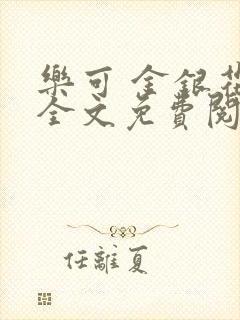 樂可 金銀花
全文免費閱
任離夏